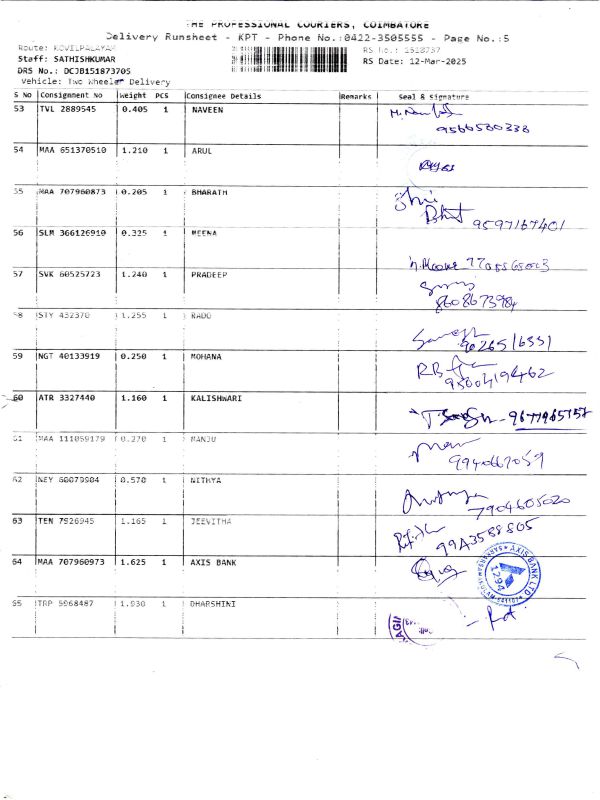 THE PROFESSIONAL COURIERS, COIMBATORE
Delivery Runsheet - KPT - Phone No.:0422-3505555 - Page No.:5
Route: KOVILPALAYAM RS No.: 1518737
Staff: SATHISHKUMAR RS Date: 12-Mar-2025
DRS No.: DCJB151873705
Vehicle: Two Wheeler Delivery
S No Consignment No Weight PCS Consignee Details Remarks Seal & Signature
53 TVL 2889545 0.405 1 NAVEEN
9566580338
54 MAA 651370510 1.210 1 ARUL
55 MAA 707960873 0.205 1 BHARATH
9597167401
56 SLM 366126910 0.325 1 MEENA
57 SVK 60525723 1.240 1 PRADEEP
8608673984
58 STY 432370 1.255 1 RADU
59 NGT 40133919 0.250 1 MOHANA
60 ATR 3327440 1.160 1 KALISHWARI
61 MAA 111059179 0.270 1 MANJU
9940667059
62 NEY 60079904 0.570 1 NITHYA
7904605020
63 TEN 7926945 1.165 1 JEEVITHA
64 MAA 707960973 1.625 1 AXIS BANK
AXIS BANK LTD
1294
65 TRP 5968487 1.930 1 DHARSHINI